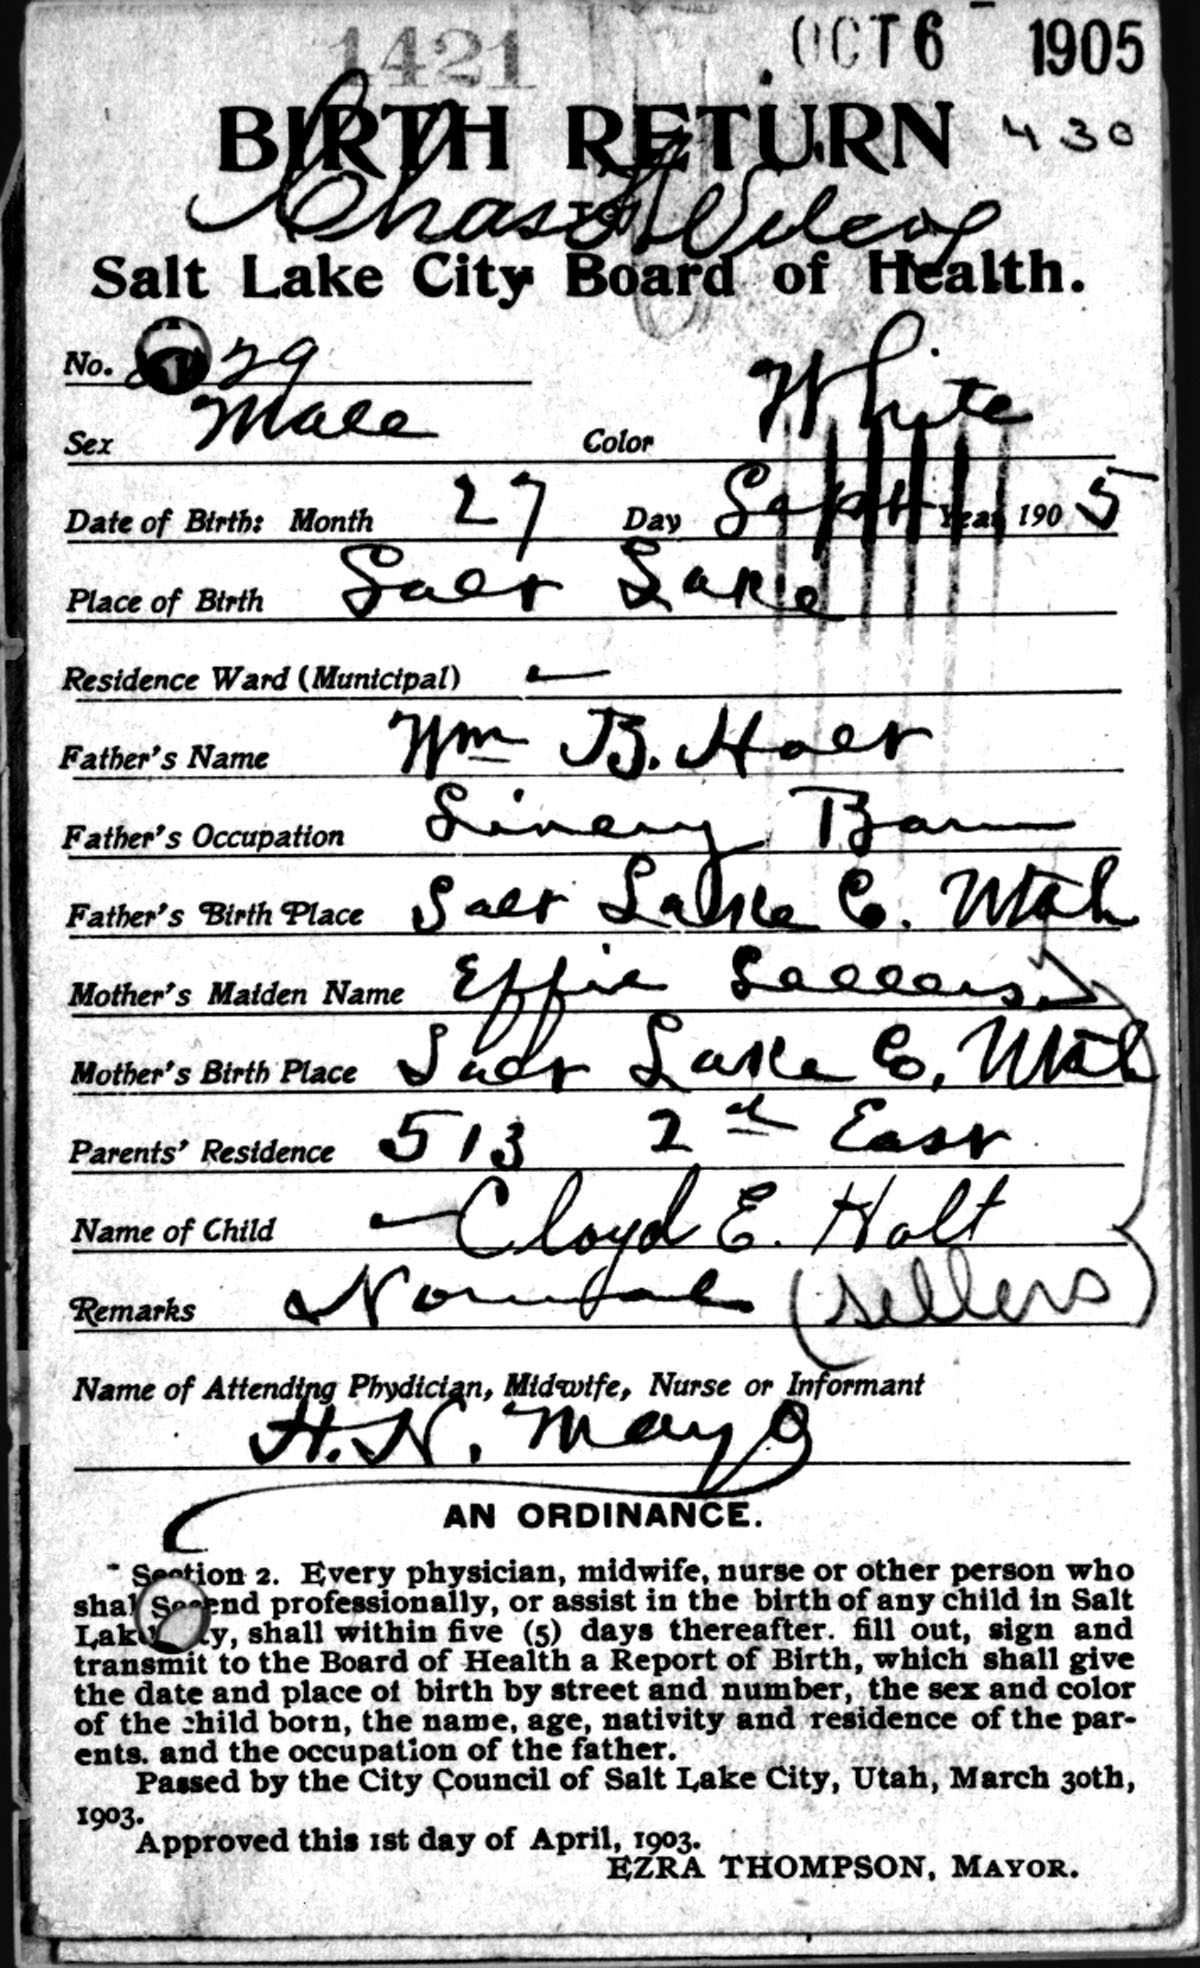 1421 OCT 6 1905
BIRTH RETURN 430
TO
Chas Wilcox
Salt Lake City Board of Health.
No. 29
Sex Male Color White
Date of Birth: Month 27 Day Sept Year 190 5
Place of Birth Salt Lake
Residence Ward (Municipal) —
Father's Name Wm B. Holt
Father's Occupation Livery Barn
Father's Birth Place Salt Lake C. Utah
Mother's Maiden Name Effie Sellers
Mother's Birth Place Salt Lake C, Utah
Parents' Residence 513 2nd East
Name of Child — Cloyd E. Holt
Remarks Normal (sellers)
Name of Attending Phydician, Midwife, Nurse or Informant
H. N. Mayo
AN ORDINANCE.
Section 2. Every physician, midwife, nurse or other person who
shal end professionally, or assist in the birth of any child in Salt
Lak y, shall within five (5) days thereafter. fill out, sign and
transmit to the Board of Health a Report of Birth, which shall give
the date and place of birth by street and number, the sex and color
of the child born, the name, age, nativity and residence of the par-
ents. and the occupation of the father.
Passed by the City Council of Salt Lake City, Utah, March 30th,
1903.
Approved this 1st day of April, 1903.
EZRA THOMPSON, MAYOR.